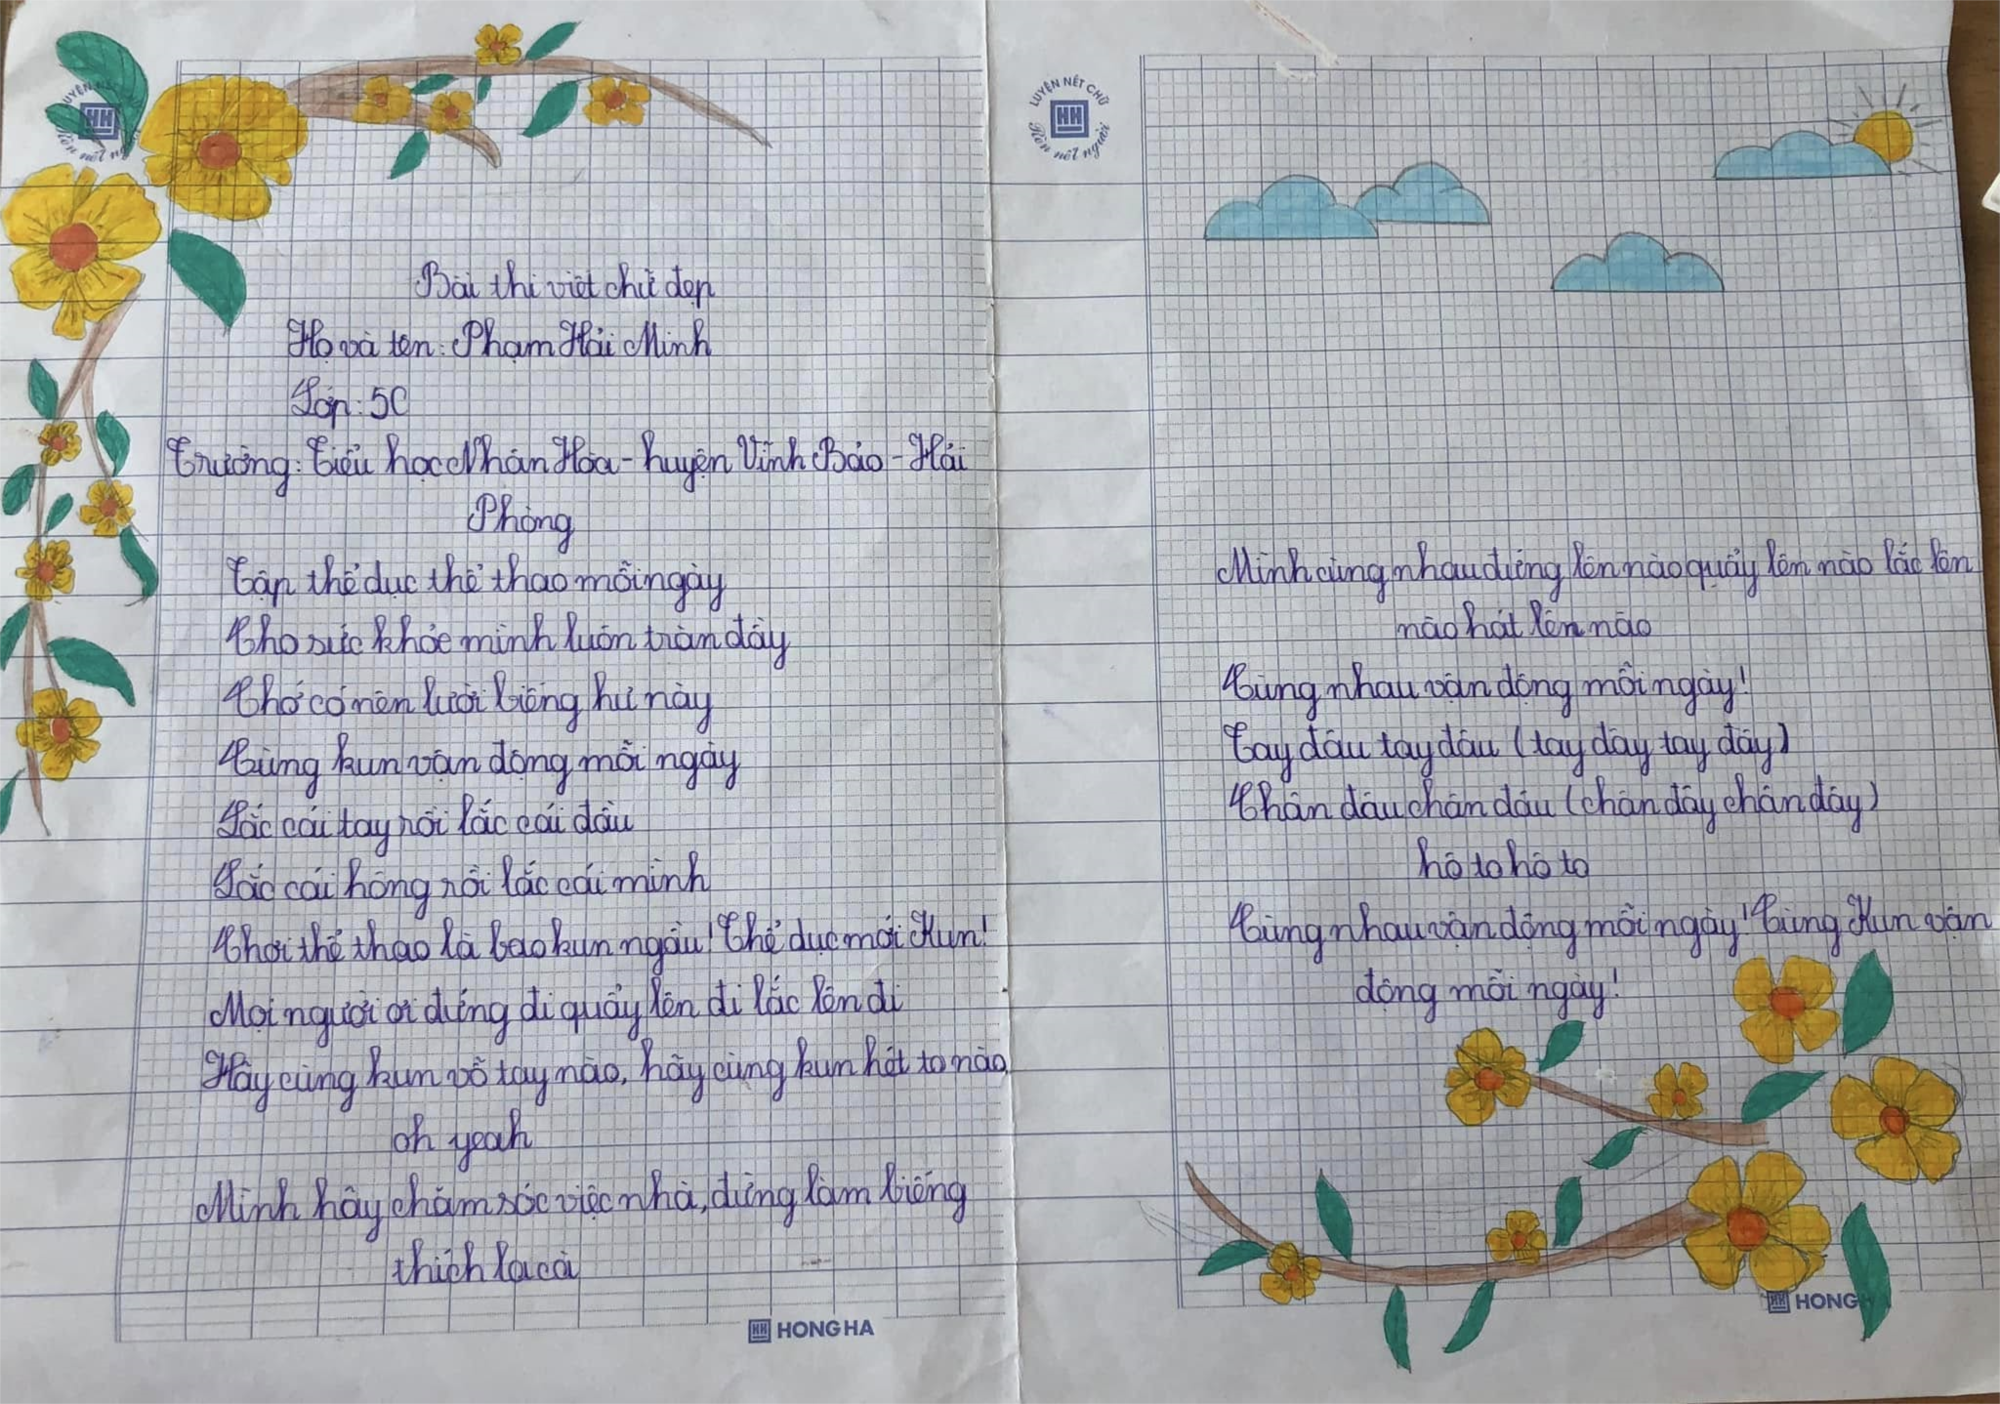 LUYỆN NÉT CHỮ
HH
Rèn nết người
Bài thi viết chữ đẹp
Họ và tên: Phạm Hải Minh
Lớp: 5C
Trường: Tiểu học Nhân Hòa - huyện Vĩnh Bảo - Hải
Phòng
Tập thể dục thể thao mỗi ngày
Cho sức khỏe mình luôn tràn đầy
Chớ có nên lười biếng hư này
Cùng kun vận động mỗi ngày
Lắc cái tay rồi lắc cái đầu
Lắc cái hông rồi lắc cái mình
Chơi thể thao là bao kun ngầu! Thể dục mới Kun!
Mọi người ơi đứng đi quẩy lên đi lắc lên đi
Hãy cùng kun vỗ tay nào, hãy cùng kun hát to nào,
oh yeah
Mình hãy chăm sóc việc nhà, đừng làm biếng
thích la cà
HH HONG HA
LUYỆN NÉT CHỮ
HH
Rèn nết người
Mình cùng nhau đứng lên nào quẩy lên nào lắc lên
nào hát lên nào
Cùng nhau vận động mỗi ngày!
Tay đâu tay đâu (tay đây tay đây)
Chân đâu chân đâu (chân đây chân đây)
hô to hô to
Cùng nhau vận động mỗi ngày! Cùng Kun vận
động mỗi ngày!
HH HONG